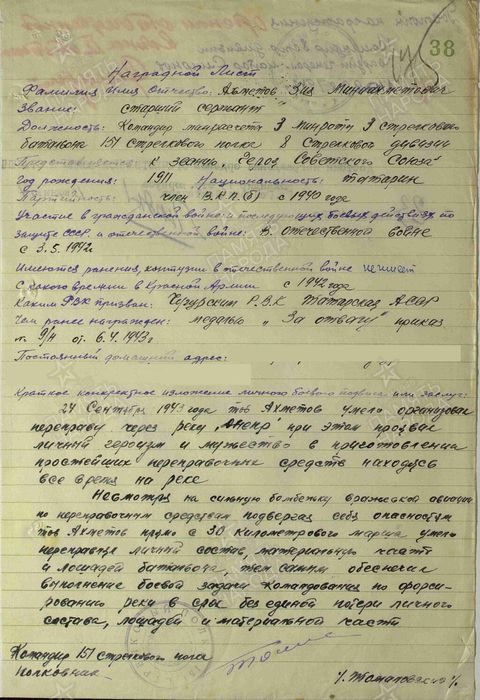 38
Наградной Лист
Фамилия Имя Отчество: Ахметов Зия Миниахметович
Звание: старший сержант
Должность: Командир минрасчета 3 минроты 3 стрелкового
батальона 151 стрелкового полка 8 Стрелковой дивизии
Представляется: к званию "Герой Советского Союза"
Год рождения: 1911 Национальность: татарин
Партийность: член В.К.П.(б) с 1940 года
Участие в гражданской войне и последующих боевых действиях по
защите СССР. и отечественной войне: В отечественной войне
с 3.5.1942
Имеются ранения, контузии в отечественной войне не имеет
С какого времени в Красной Армии с 1942 года
Каким РВК призван: Р.В.К Татарская АССР
Чем ранее награжден: медалью "За отвагу" приказ
№ 9/н от 6.4.1943 г
Постоянный домашний адрес:
Краткое конкретное изложение личного боевого подвига или заслуг:
24 Сентября 1943 года тов Ахметов умело организовал
переправу через реку Днепр при этом проявив
личный героизм и мужество в приготовлении
простейших переправочных средств находясь
все время на реке
Несмотря на сильную бомбежку вражеской авиации
по переправочным средствам подвергая себя опасностям
тов Ахметов прямо с 30 километрового марша умело
переправил личный состав, материальную часть
и лошадей батальона, тем самым обеспечил
выполнение боевой задачи командования по форси-
рованию реки в срок без единой потери личного
состава, лошадей и материальной части
Командир 151 стрелкового полка
полковник